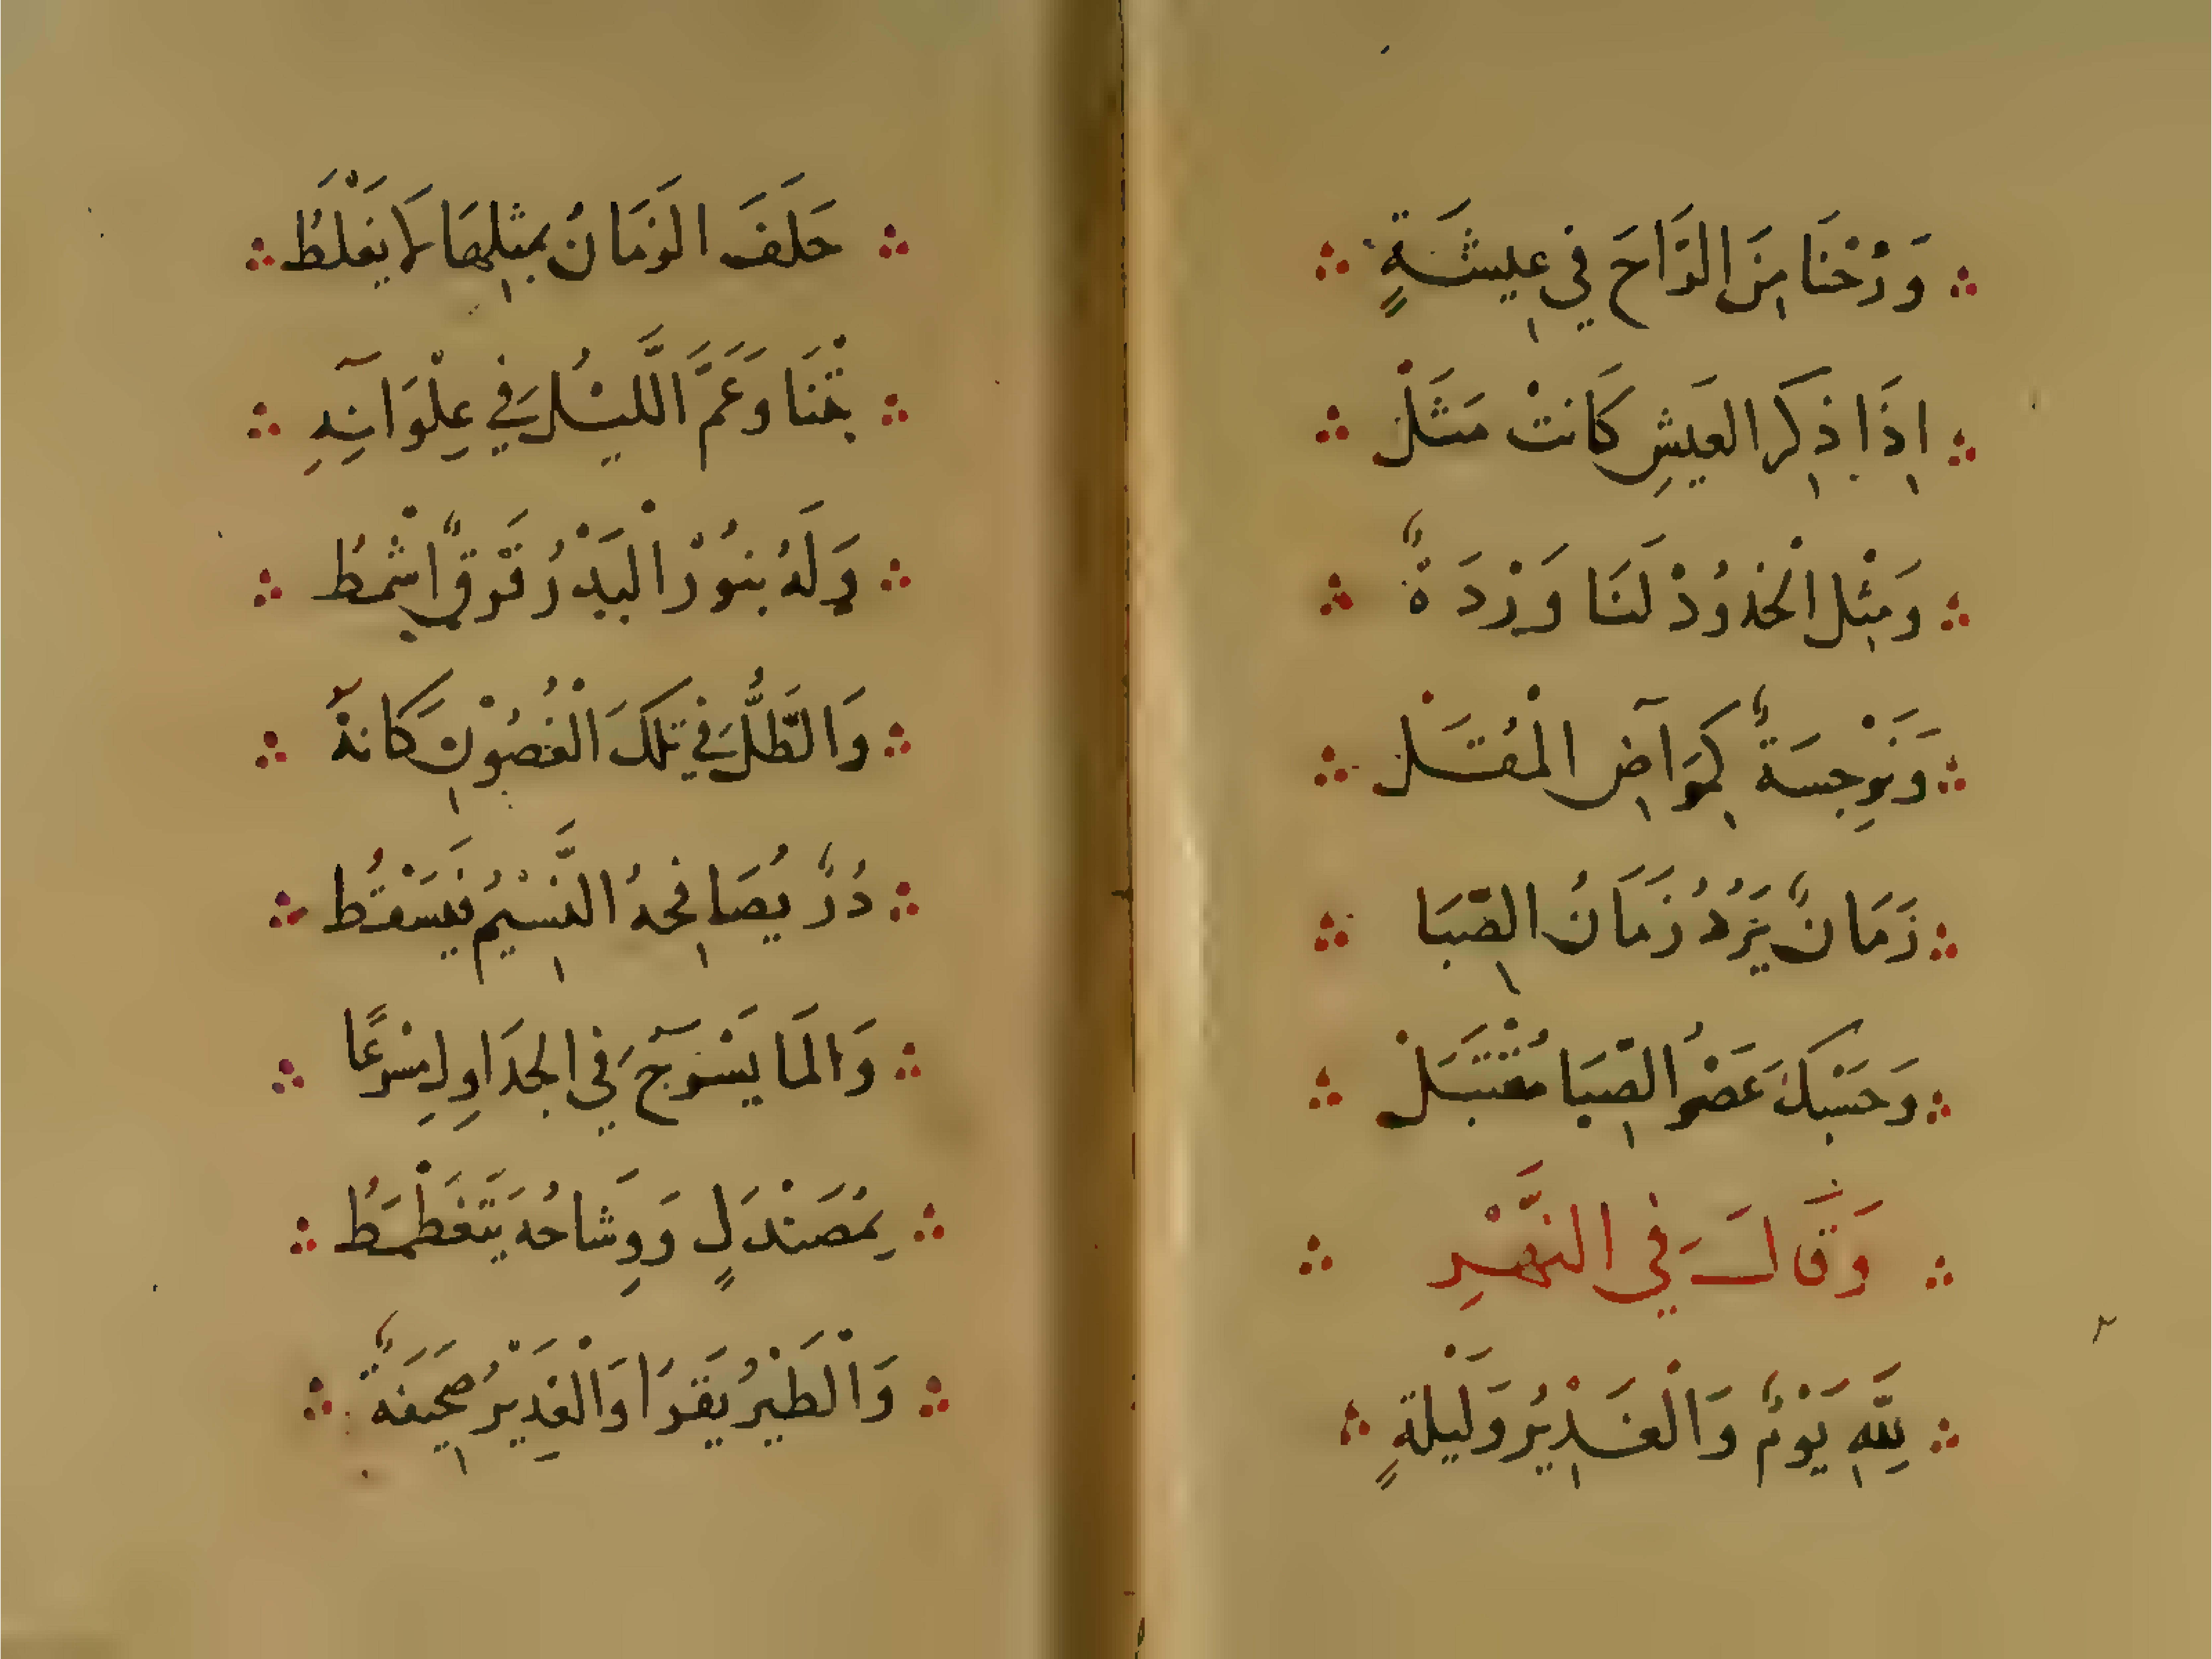 وَرُحْنَا مِنَ الرَّاحِ فِي عِيشَةٍ
اِذَا ذِكِر العَيشِ كَانَتْ مَثَلْ
وَمِثْل الْخُدُودْ لَنَا وَرْدَةٌ
وَنَرْجِسَةٌ كِمَرَآضِ الْمُقَلْ
زَمَانٌ يَرُدُ زَمَانُ الصِّبَا
وَحَسْبكَ عَصْرُ الصِّبَا مُقْتَبَلْ
وَقَالَ فِي النَّهْرِ
لِلَّهِ يَوْمٌ وَالْغَدِيْرُ وَلَيْلةٍ
حَلَفَ الزمَانُ بِمثِلِهَا لَا يَغْلَطُ
بِتْنَا وَعَمَّ اللَّيْلُ فِي عِلْوَآنِهِ
وَلَهُ بنُوْرْ الْبَدْرُ فَرْقٌ اشْمطُ
وَالطَّلُّ فِي تلكَ الْغُصُوْنِ كَانهُ
دُرٌ يُصَافِحهُ النَّسِيْمُ فَيَسْقُطُ
وَالمَا يَسْرَحُ فِي الجدَاوِلِ مِسْرعًا
بِمُصَنْدَلٍ وَوِشَاحُه يَتَغَطْمَطُ
وَالْطَيْرُ يَقْرَا وَالْغَدِيْرُ صَحِيَفةٌ